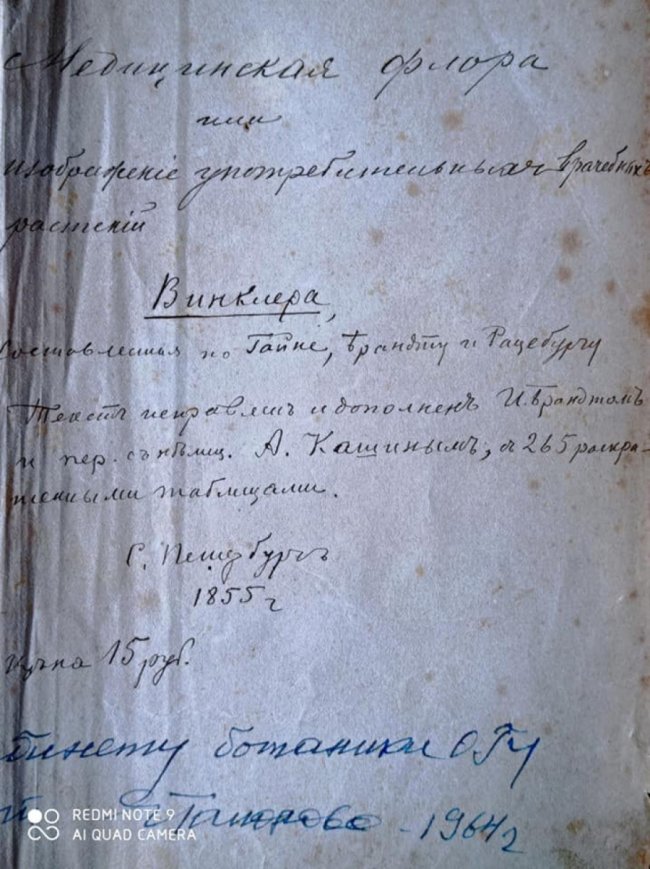 Медицинская флора
или
изображенiе употребительныхъ врачебныхъ
растенiй
Винклера,
Составленная по Гайне, Брандту и Рацебургу
Текстъ исправленъ и дополненъ И. Брандтомъ
и пер. съ нѣмец. А. Кашинымъ, съ 265 раскра-
шенными таблицами.
С. Петербургъ
1855 г
Цѣна 15 руб.
бинету ботаники ОГУ
1964 г
REDMI NOTE 9
AI QUAD CAMERA